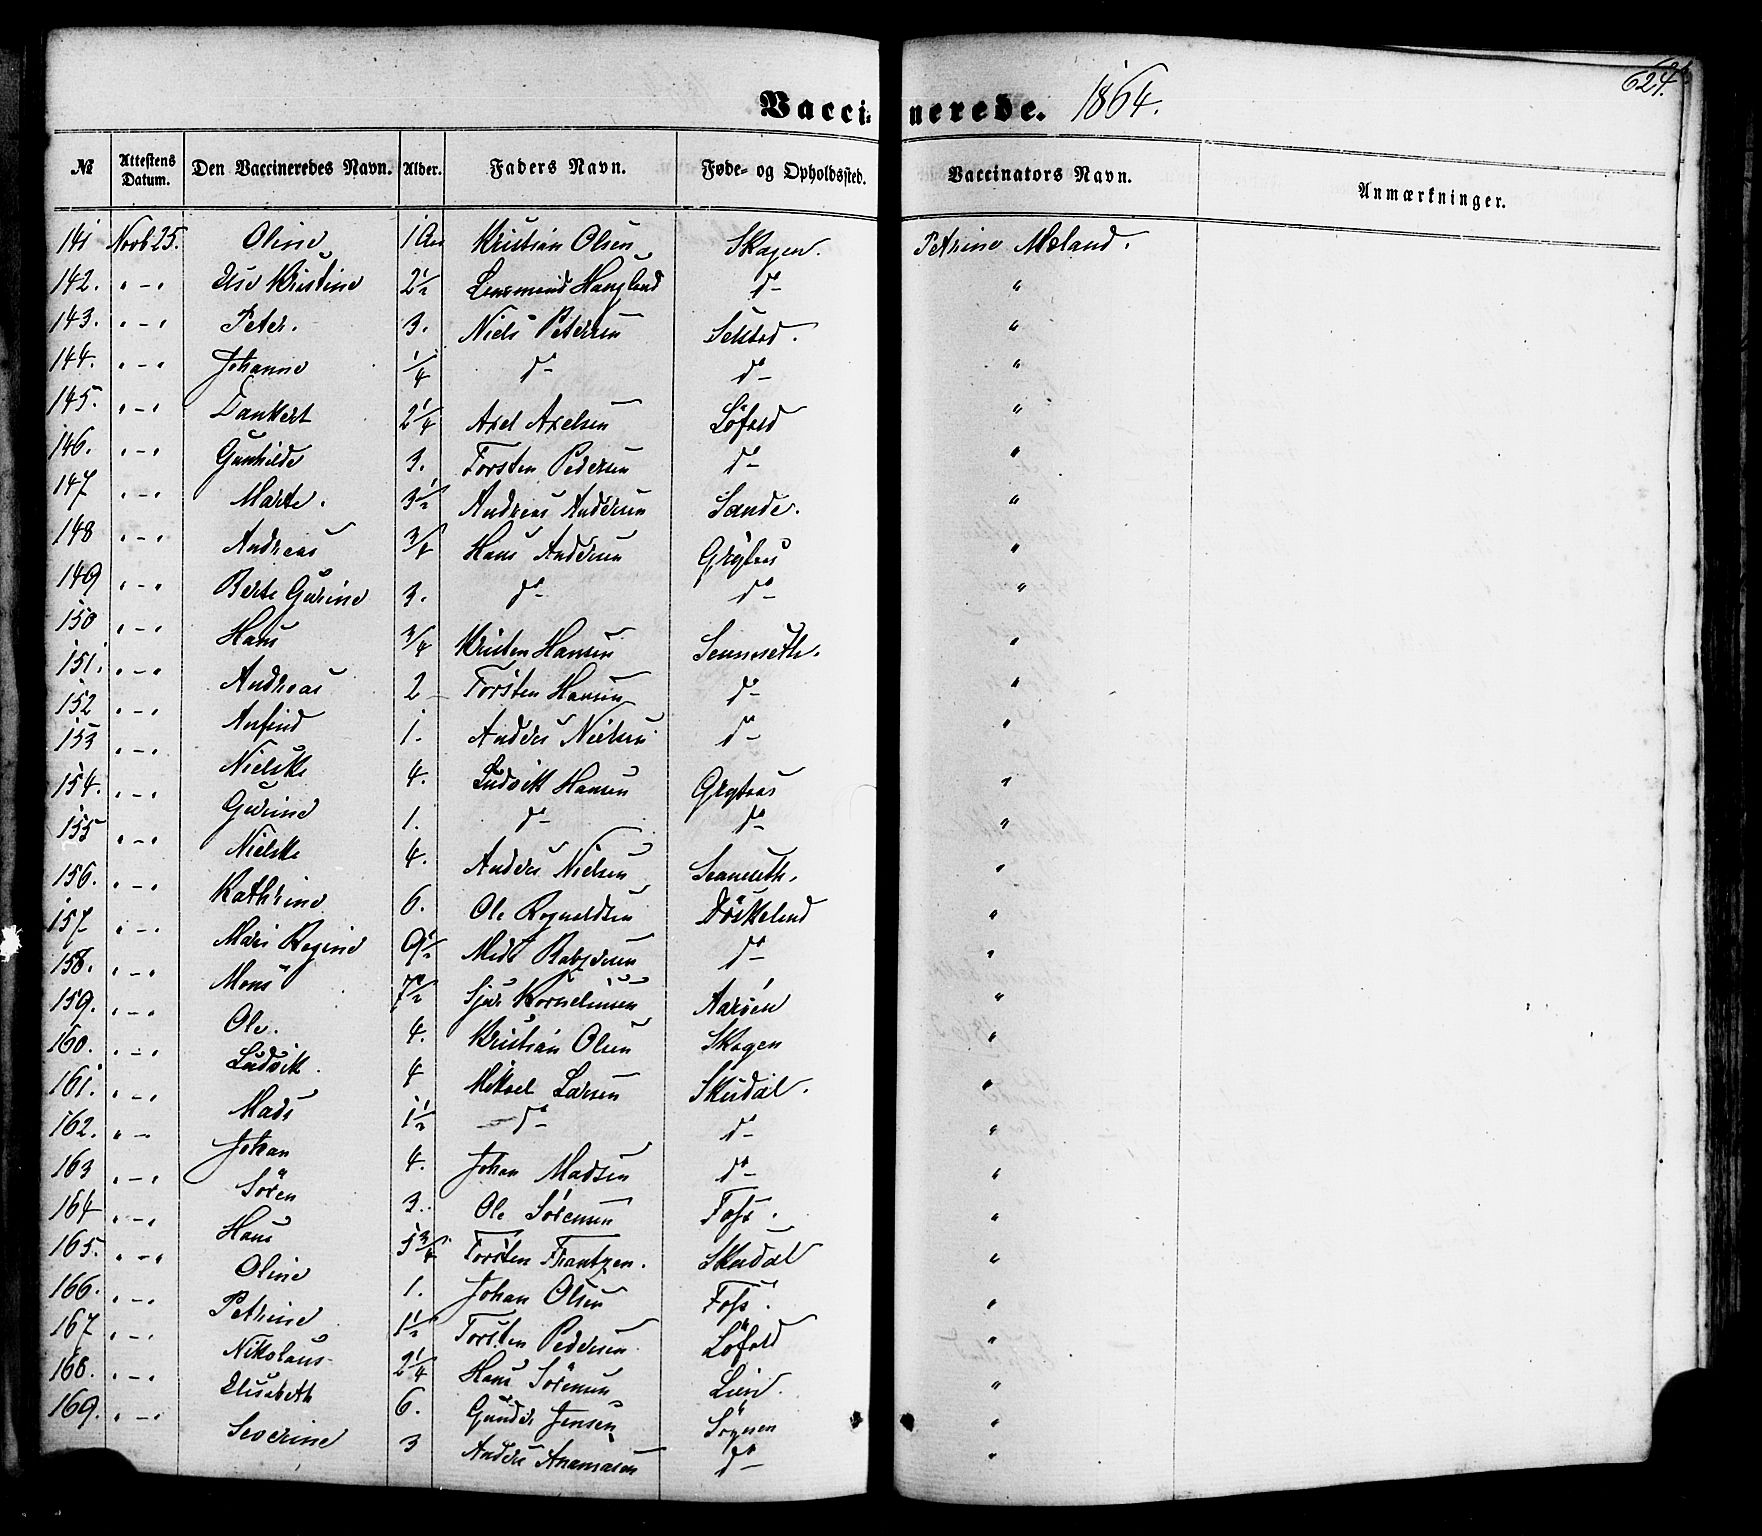 624.
Vaccinerede. 1864.
№ Attestens Datum. Den Vaccineredes Navn. Alder. Faders Navn. Føde- og Opholdssted. Vaccinators Navn. Anmærkninger.
141 Novb 25. Oline 1 Aar Kristian Olsen Skagen. Petrine Mæland.
142. " - " Else Kristine 2½ Lensmand Haugland do "
143. " - " Peter. 3. Niels Petersen Selstad. "
144. " - " Johanne ¼ do do "
145. " - " Dankert 2¼ Axel Axelsen Löfald "
146. " - " Gunhilde 3. Torsten Pedersen do "
147 " - " Marte. 3½ Andreas Andersen Sande. "
148 " - " Andreas ¾ Hans Andersen Grytøs "
149 " - " Berte Gurine 3. do do "
150 " - " Hans ¾ Kristen Hansen "
151. " - " Andreas 2 Torsten Hansen do "
152 " - " Anfind 1. Anders Nielsen do "
153 " - " Nielske 4. Ludvik Hansen Grytøs "
154. " - " Gurine 1. do do "
155 " - " Nielske 4. Anders Nielsen "
156. " - " Kathrine 6. Ole Rognaldsen Döskeland "
157 " - " Mari Regine 9½ Mads do "
158. " - " Mons 7½ Sjur Korneliusen Aaröen "
159. " - " Ole. 4. Kristian Olsen Skagen "
160. " - " Ludvik. 4 Mikael Larsen Skudal. "
161. " - " Mads 1½ do do "
162. " - Johan 4. Johan Madsen do "
163 " - " Sören 3. Ole Sörensen Foss. "
164 " - " Hans 5¾ Torsten Frantzen. Skudal "
165. " - " Oline 1. Johan Olsen Foss. "
166. " - " Petrine 1½ Torsten Pedersen Löfald "
167 " - " Nikolaus 2¼ Hans Sörensen Lien. "
168. " - " Elisabeth 6. Gunder Jensen Sognen "
169. " - " Severine 3 Anders do "